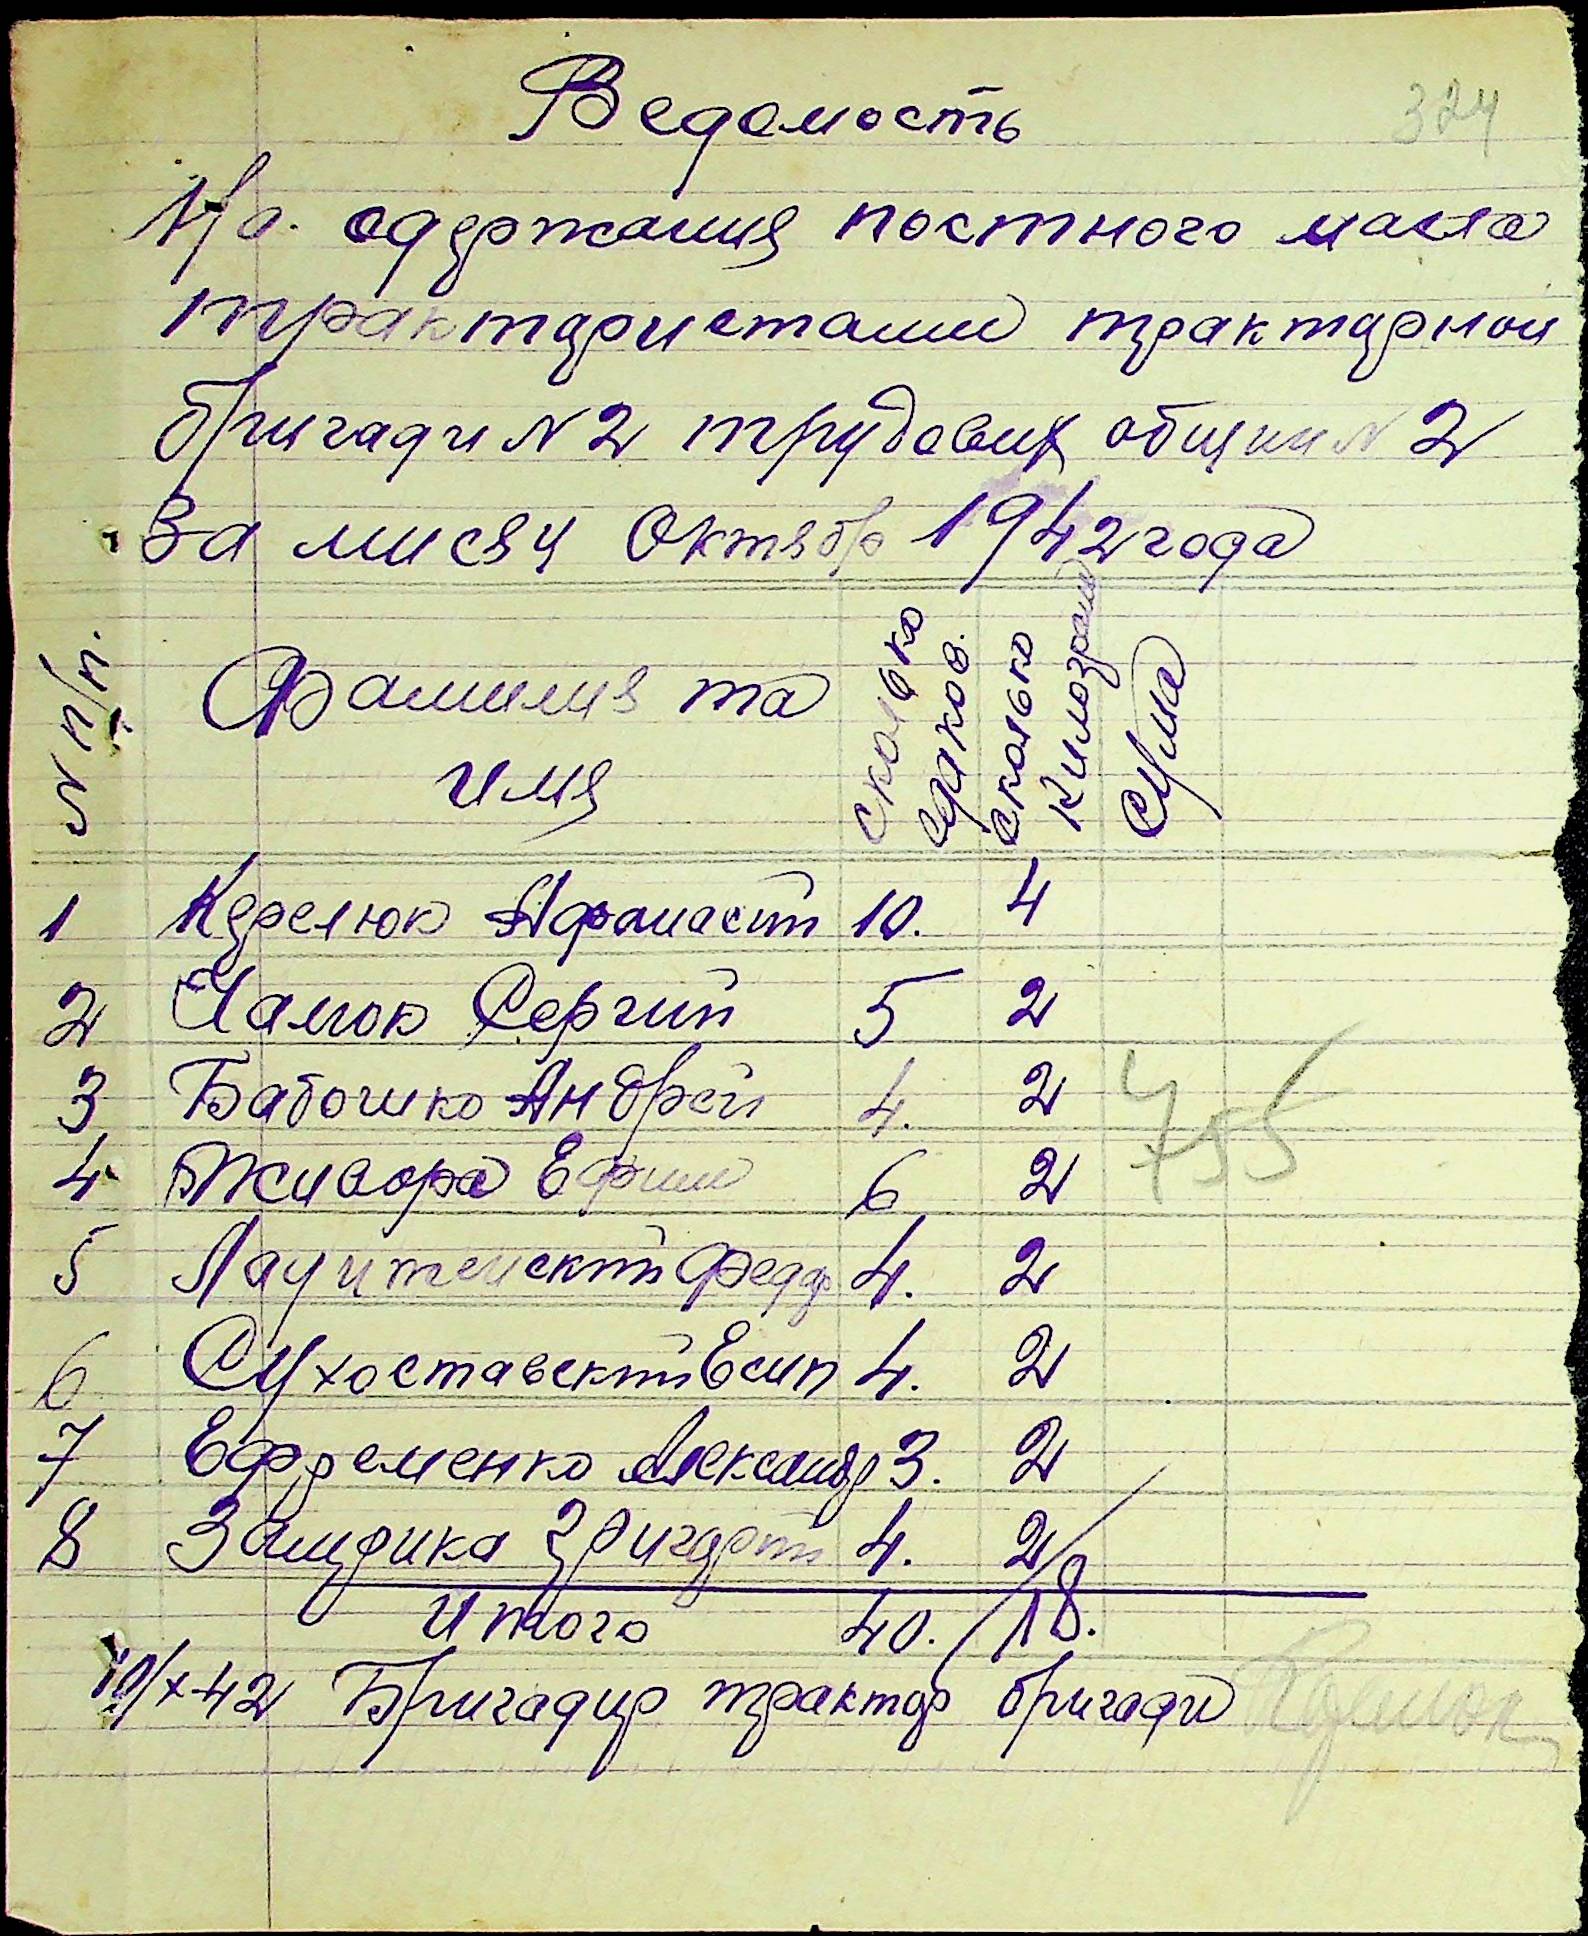 Ведомость
324
На одержания постного масла
трактаристами трактарнои
бригади N 2 трудових общини N 2
За мисяц Октябр 1942 года
N п/п.
Фамилия та имя
сколько едаков.
сколько килограм
Сума
1 Керелюк Афанасій 10. 4
2 Чамок Сергий 5 2
3 Бабошко Андрей 4. 2
4 Ефим 6 2
5 Федор 4. 2
6 Сухоставскій Есип 4. 2
7 Ефременко Александр 3. 2
8 Замрика Григорій 4. 2
755
Итого 40. 18.
10/X-42 Бригадир трактор бригади